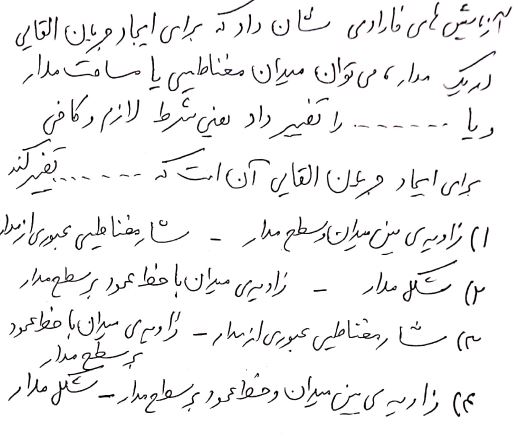 آزمایش‌های فارادی نشان داد که برای ایجاد جریان القایی
در یک مدار، می‌توان میدان مغناطیسی یا مساحت مدار
و یا ....... را تغییر داد یعنی شرط لازم و کافی
برای ایجاد جریان القایی آن است که ....... تغییر کند
۱) زاویه‌ی بین میدان و سطح مدار - شار مغناطیسی عبوری از مدار
۲) شکل مدار - زاویه‌ی میدان با خط عمود بر سطح مدار
۳) شار مغناطیسی عبوری از مدار - زاویه‌ی میدان با خط عمود
بر سطح مدار
۴) زاویه‌ی بین میدان و خط عمود بر سطح مدار - شکل مدار